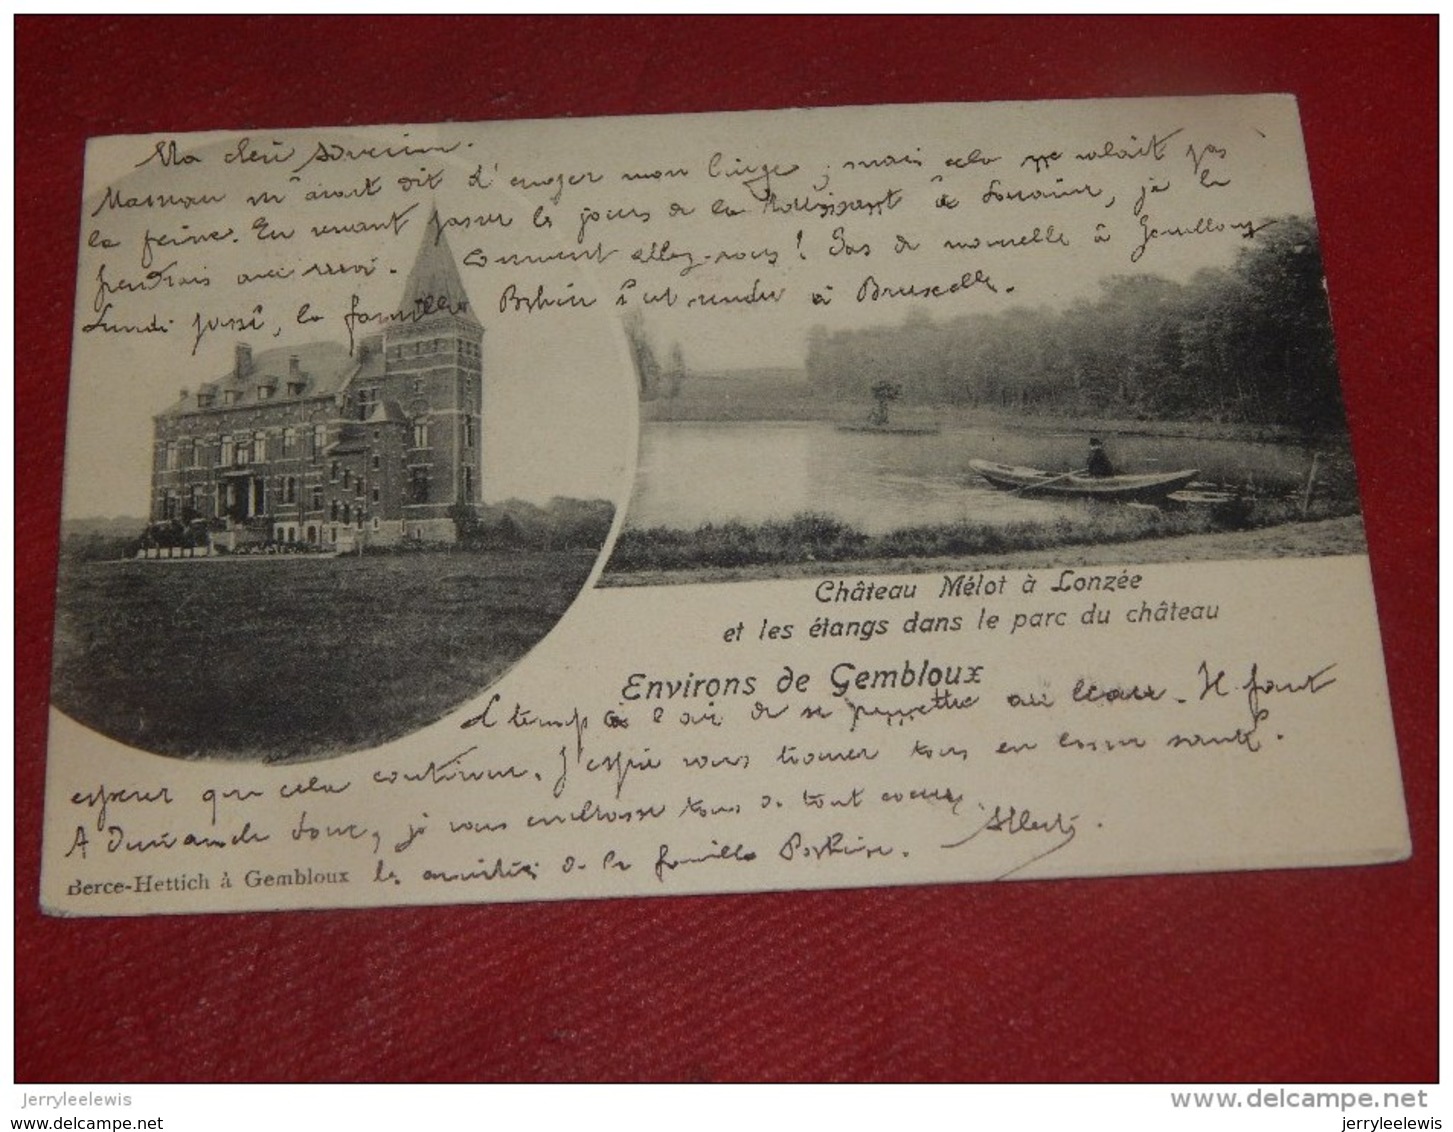 Ma chère
Maman m'avait dit d'envoyer mon linge, mais cela ne valait pas
la peine. En venant passer les jours de la à Louvain, je le
prendrais avec moi. Comment allez-vous! Pas de nouvelle à Gembloux
Lundi passé, la famille s'est rendue à Bruxelles.
Château Mélot à Lonzée
et les étangs dans le parc du château
Environs de Gembloux
L temps a l'air de se remettre au beau. Il faut
espérer que cela continue. J'espère vous trouver tous en bonne santé.
A Dimanche donc, je vous embrasse tous de tout coeur. Albert.
Berce-Hettich à Gembloux les amitiés de la famille
jerryleelewis
www.delcampe.net
jerryleelewis
jerryleelewis